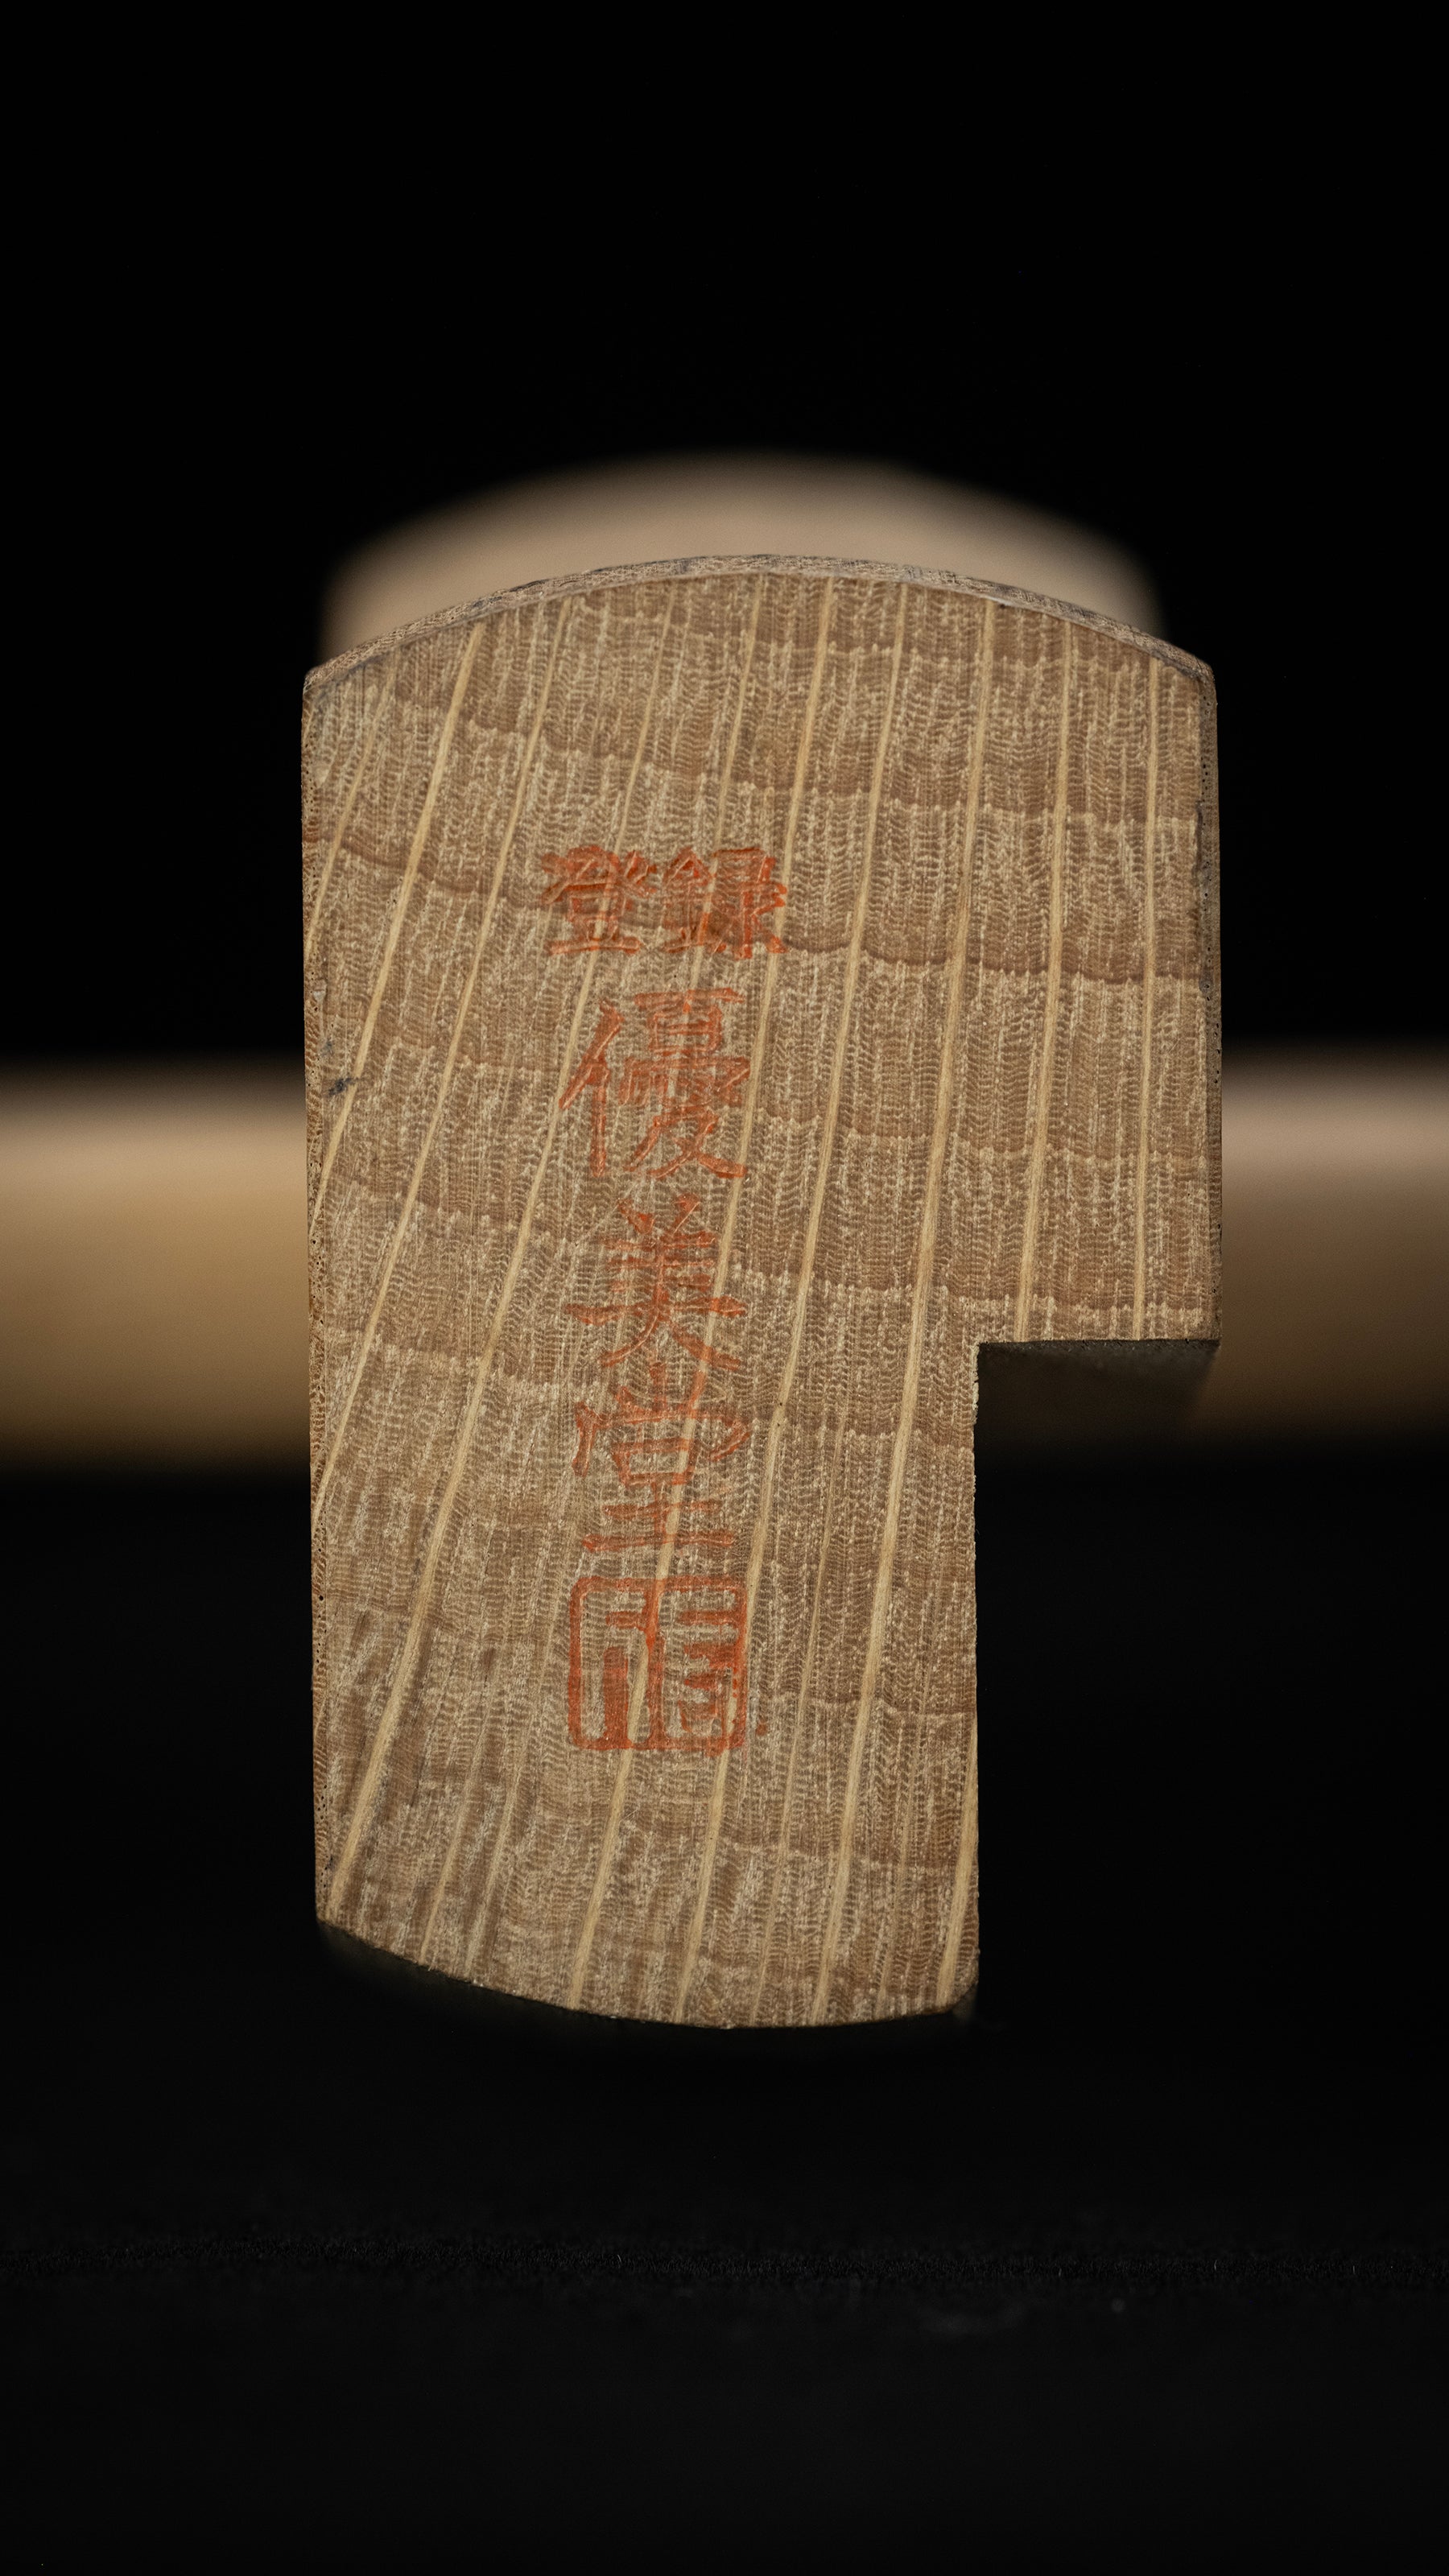 登録
優美堂